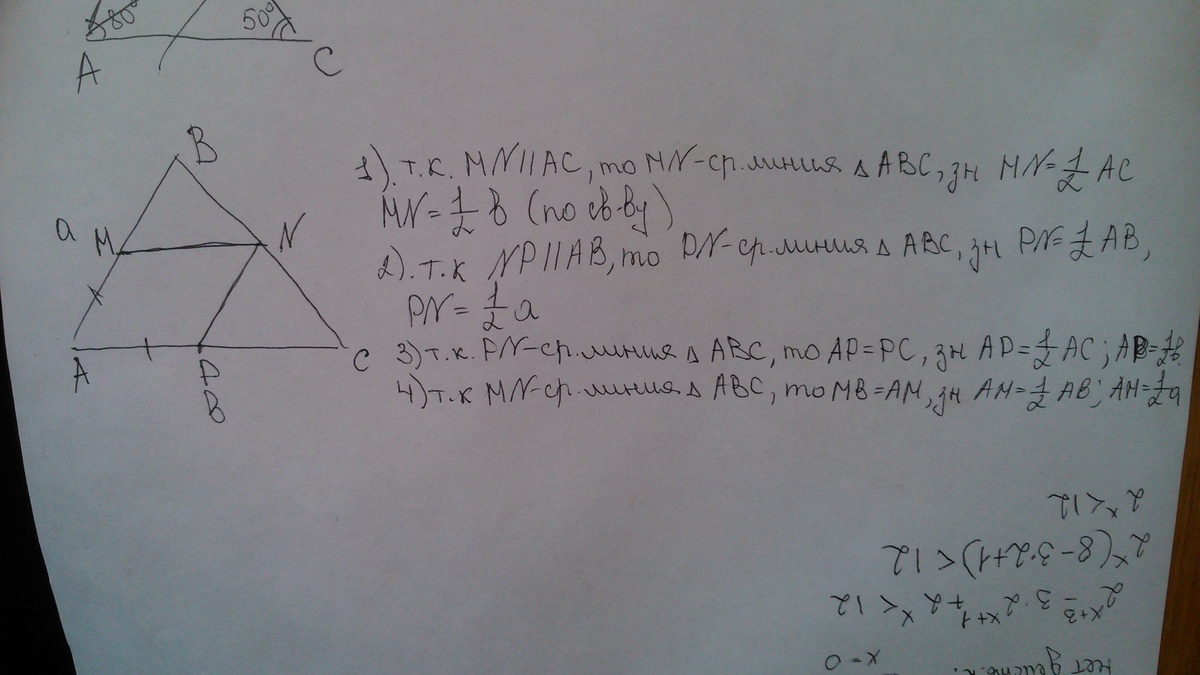 80°
50°
A
C
B
a
M
N
A
P
C
в
1). т.к. MN || AC, то MN-ср.линия △ ABC, зн MN = 1/2 AC
MN = 1/2 в (по св-ву)
2). т.к NP || AB, то PN-ср.линия △ ABC, зн PN = 1/2 AB,
PN = 1/2 a
3) т.к. PN-ср.линия △ ABC, то AP = PC, зн AP = 1/2 AC; AP = 1/2 в.
4) т.к MN-ср.линия △ ABC, то MB = AM, зн AM = 1/2 AB; AM = 1/2 a
нет x = 0
2^(x+3) - 3 · 2^(x+1) + 2^x < 12
2^x (8 - 3 · 2 + 1) < 12
2^x < 12